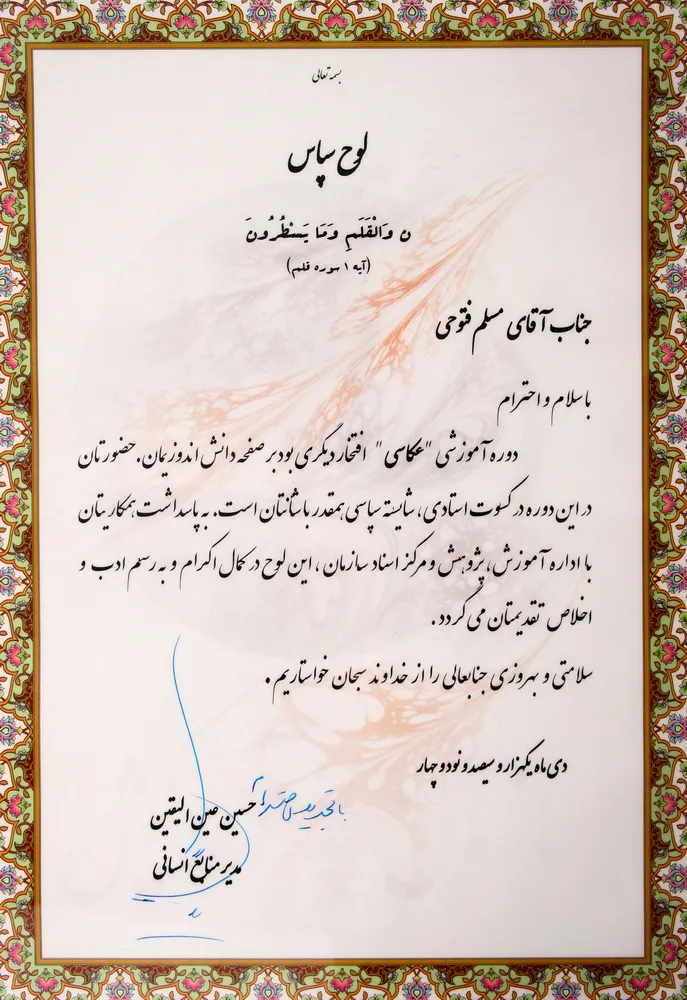 بسمه تعالی
لوح سپاس
ن وَالْقَلَمِ وَمَا يَسْطُرُونَ
(آیه ۱ سوره قلم)
جناب آقای مسلم فتوحی
با سلام و احترام
دوره آموزشی "عکاسی" افتخار دیگری بود بر صفحه دانش اندوزیمان. حضورتان
در این دوره در کسوت استادی، شایسته سپاسی همقدر با شأنتان است. به پاسداشت همکاریتان
با اداره آموزش، پژوهش و مرکز اسناد سازمان، این لوح در کمال اکرام و به رسم ادب و
اخلاص تقدیمتان می گردد.
سلامتی و بهروزی جنابعالی را از خداوند سبحان خواستاریم.
دی ماه یکهزار و سیصد و نود و چهار
با تجدید احترام
حسین عین الیقین
مدیر منابع انسانی